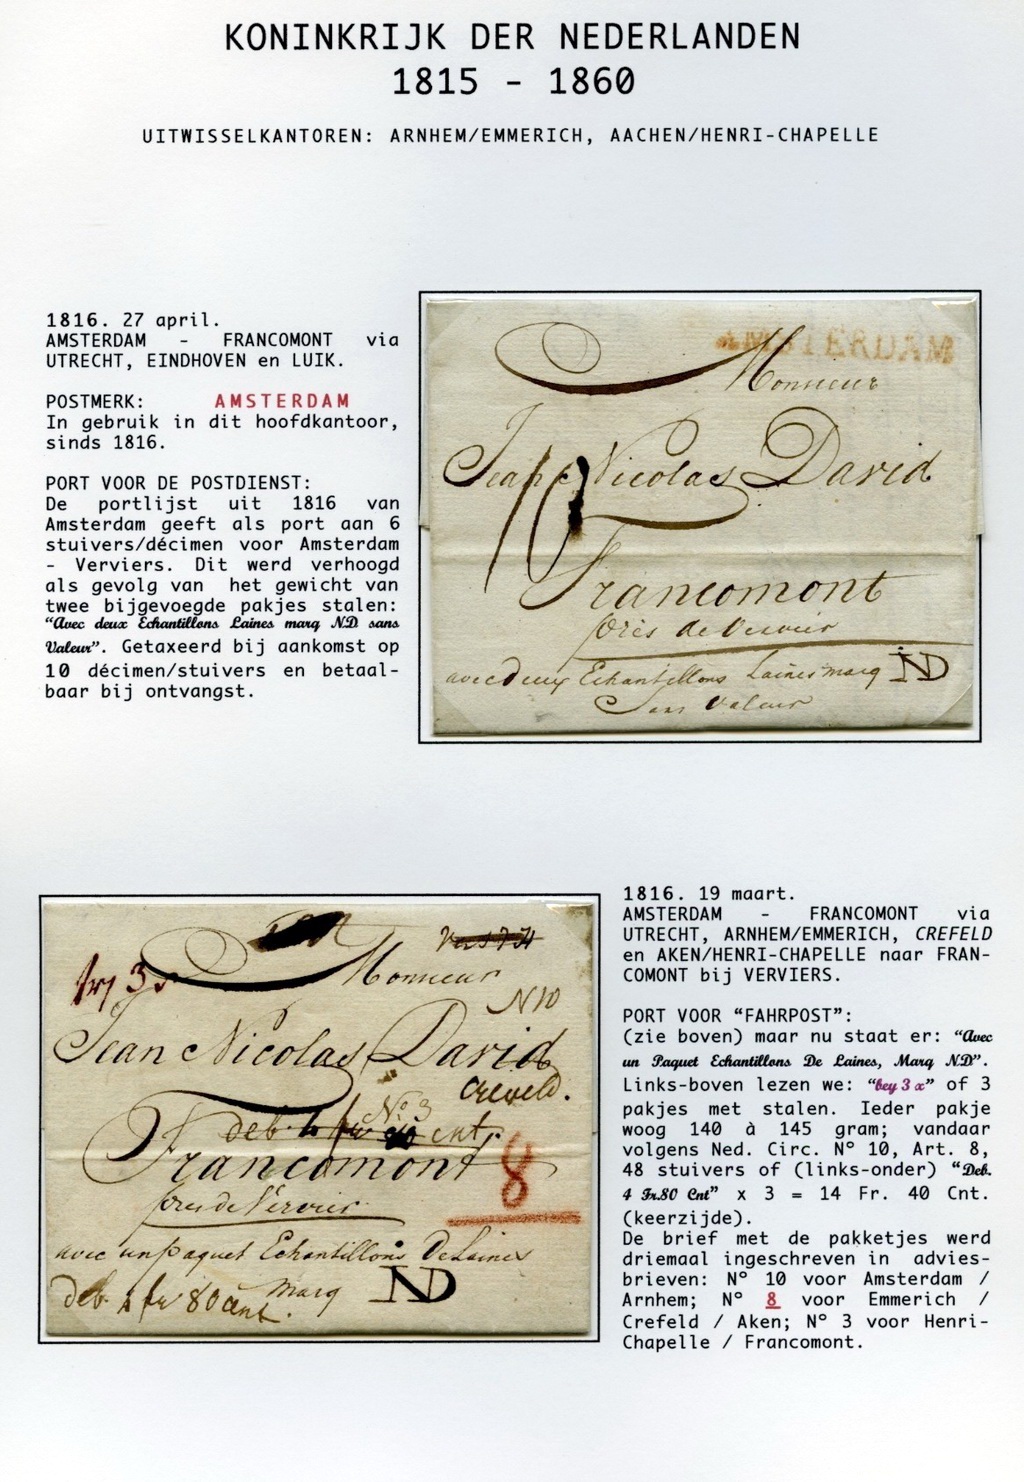 KONINKRIJK DER NEDERLANDEN
1815 - 1860
UITWISSELKANTOREN: ARNHEM/EMMERICH, AACHEN/HENRI-CHAPELLE
1816. 27 april.
AMSTERDAM - FRANCOMONT via
UTRECHT, EINDHOVEN en LUIK.
POSTMERK: AMSTERDAM
In gebruik in dit hoofdkantoor,
sinds 1816.
PORT VOOR DE POSTDIENST:
De portlijst uit 1816 van
Amsterdam geeft als port aan 6
stuivers/décimen voor Amsterdam
- Verviers. Dit werd verhoogd
als gevolg van het gewicht van
twee bijgevoegde pakjes stalen:
"Avec deux Echantillons Laines marq N.D sans
Valeur". Getaxeerd bij aankomst op
10 décimen/stuivers en betaal-
baar bij ontvangst.
AMSTERDAM
Monsieur
Jean Nicolas David
10
Francomont
près de Vervier
avec deux Echantillons Laines marq ND
Sans Valeur
1816. 19 maart.
AMSTERDAM - FRANCOMONT via
UTRECHT, ARNHEM/EMMERICH, CREFELD
en AKEN/HENRI-CHAPELLE naar FRAN-
COMONT bij VERVIERS.
PORT VOOR "FAHRPOST":
(zie boven) maar nu staat er: "Avec
un Paquet Echantillons De Laines, Marq N.D".
Links-boven lezen we: "bey 3 x" of 3
pakjes met stalen. Ieder pakje
woog 140 à 145 gram; vandaar
volgens Ned. Circ. N° 10, Art. 8,
48 stuivers of (links-onder) "Deb.
4 Fr.80 Cnt" x 3 = 14 Fr. 40 Cnt.
(keerzijde).
De brief met de pakketjes werd
driemaal ingeschreven in advies-
brieven: N° 10 voor Amsterdam /
Arnhem; N° 8 voor Emmerich /
Crefeld / Aken; N° 3 voor Henri-
Chapelle / Francomont.
bey 3 x
Monsieur
N 10
Jean Nicolas David
Creveld.
N° 3
deb.
cnt
Francomont
8
près de Vervier
avec un Paquet Echantillons De Laines
deb. 4 fr 80 cent. marq ND